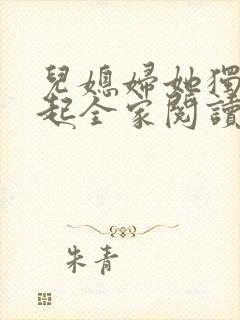 兒媳婦她獨
起全家閱讀
朱青